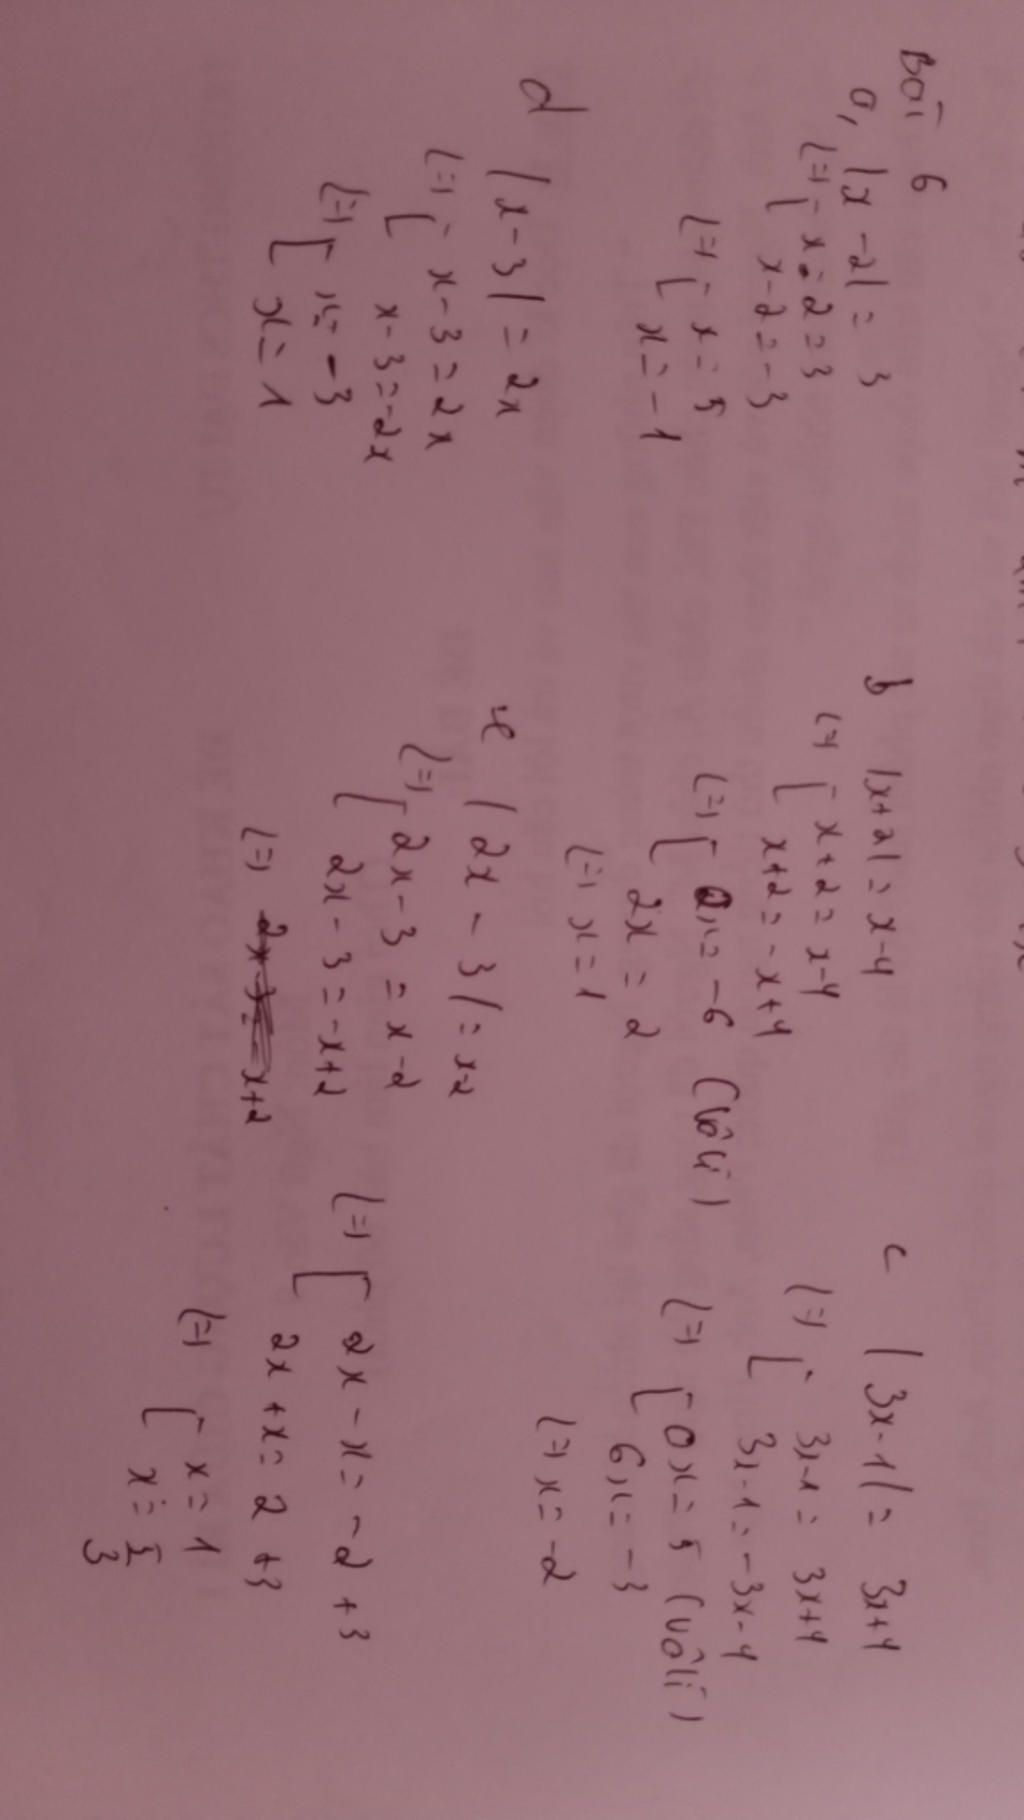 Bài 6
a, |x - 2| = 3
(=) [ x - 2 = 3
x - 2 = -3
(=) [ x = 5
x = -1
b |x+2| = x-4
(=) [ x+2 = x-4
x+2 = -x+4
(=) [ 0x = -6 (vôlí)
2x = 2
(=) x = 1
c |3x-1| = 3x+4
(=) [ 3x-1 = 3x+4
3x-1 = -3x-4
(=) [ 0x = 5 (vôlí)
6x = -3
(=) x = -2
d |x-3| = 2x
(=) [ x-3 = 2x
x-3 = -2x
(=) [ x = -3
x = 1
e |2x - 3| = x-2
(=) [ 2x-3 = x-2
2x-3 = -x+2
(=)
(=) [ 2x - x = -2 +3
2x + x = 2 +3
(=) [ x = 1
x = 5/3